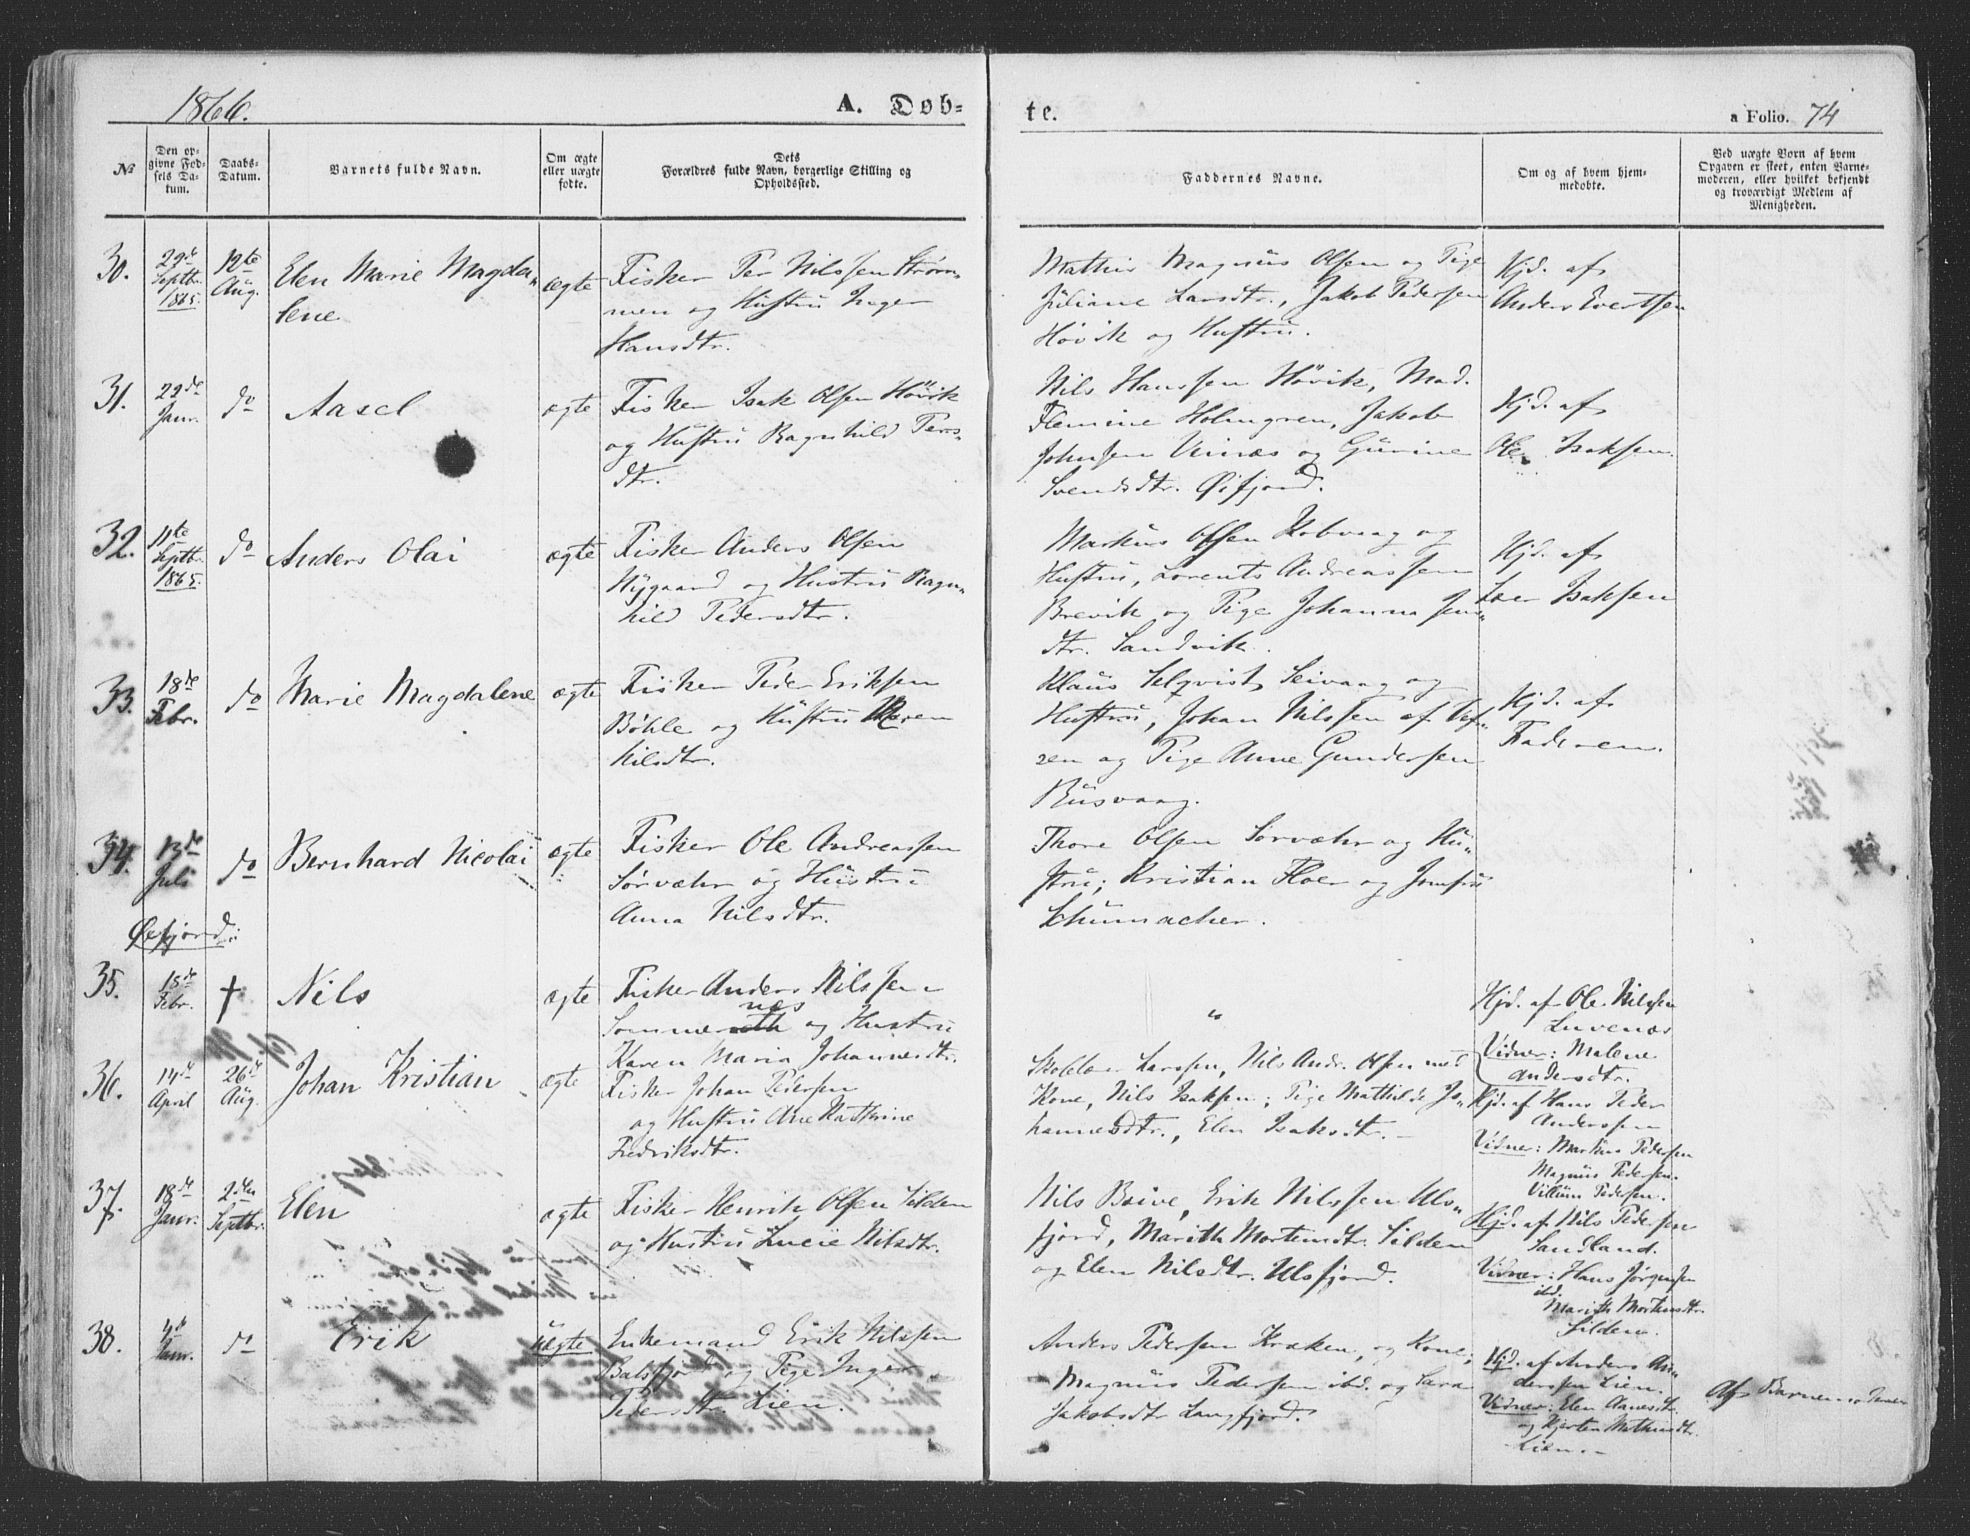 1866.
A. Døb-
te.
a Folio. 74
№
Den op-
givne Fød-
sels Da-
tum.
Daabs-
Datum.
Barnets fulde Navn.
Om ægte
eller uægte
fødte.
Dets
Forældres fulde Navn, borgerlige Stilling og
Opholdssted.
Faddernes Navne.
Om og af hvem hjem-
medøbte.
Ved uægte Børn af hvem
Opgaven er skeet, enten Barne-
moderen, eller hvilket bekjendt
og troværdigt Medlem af
Menigheden.
30.
29de
Septbr.
1865.
12te
Aug.
Elen Marie Magda„
lene
ægte
Fisker Per Nilssen Strøm-
men og Hustru Inger
Hansdtr.
Mathis Magnus Olsen og Pige
Juliane Larsdtr., Jakob Pedersen
Høvik og Hustru.
Hjd. af
Anders Evertsen
31.
22de
Janr.
do
Aasel
ægte
Fisker Isak Olsen Høvik
og Hustru Ragnhild Pers„
dtr.
Nils Hanssen Høvik, Mad.
Flemine Holmgren, Jakob
Johnsen Vinnæs og Gurine
Svendsdtr. Øifjord.
Hjd. af
Ole Isaksen
32.
11te
Septbr.
1865.
do
Anders Olai
ægte
Fisker Anders Olsen
Nygaard og Hustru Ragn„
hild Pedersdtr.
Markus Olsen Kobvaag og
Hustru, Lorents Andreassen
Brevik og Pige Johanna Jens„
dtr. Sandvik.
Hjd. af
Isaksen
33.
18de
Febr.
do
Marie Magdalene
ægte
Fisker Peder Eriksen
Bøhle og Hustru Maren
Nilsdtr.
Klaus Selqvist, Seivaag og
Hustru, Johan Nilssen af Vef„
sen og Pige Anne Gundersen
Rusvaag.
Hjd. af
Faderen.
34.
13de
Juli
do
Bernhard Nicolai
ægte
Fisker Ole Andreassen
Sørvæhr og Hustru
Anna Nilsdtr.
Thore Olsen Sørvæhr og Hu„
stru; Kristian Floer og Jomfru
Schumacher.
Øxfjord:
35.
15de
Febr.
†
Nils
ægte
Fisker Anders Nilssen
næs
Sommer og Hustru
Karen Maria Johannesdtr.
"
Hjd. af Ole Nilssen
Luvenæs
Vidner: Malene
Andersdtr.
36.
14de
April
26de
Aug.
Johan Kristian
ægte
Fisker Johan Pedersen
og Hustru Ane Kathrine
Fredriksdtr.
Skolelærer Larssen, Nils Andr. Olsen med
Kone, Nils Isaksen; Pige Mathilde Jo„
hannesdtr., Elen Isaksdtr.
Hjd. af Hans Peder
Anderssen
Vidner: Martins Pedersen
Magnus Pedersen.
Villum Pedersen.
37.
18de
Janr.
2den
Septbr.
Elen
ægte
Fisker Henrik Olsen Silden
og Hustru Lucie Nilsdtr.
Nils Boive, Erik Nilssen Uls„
fjord, Marith Mortensdtr. Silden
og Elen Nilsdtr. Ulsfjord.
Hjd. af Nils Pedersen
Sandland.
Vidner: Hans Jørgensen
ibd.
Marith Mortensdtr.
Silden.
38.
4de
Janr.
do
Erik
uægte
Enkemand Erik Nilssen
Balsfjord og Pige Inger
Pedersdtr Lien.
Anders Pedersen Kræken, og Kone;
Magnus Pedersen ibd. og Sara
Jakobsdtr Langfjord.
Hjd. af Anders An„
derssen Lien.
Vidner: Elen Aanesdtr.
og Kjersten Mathisdtr.
Lien.
Af Barnemoderen